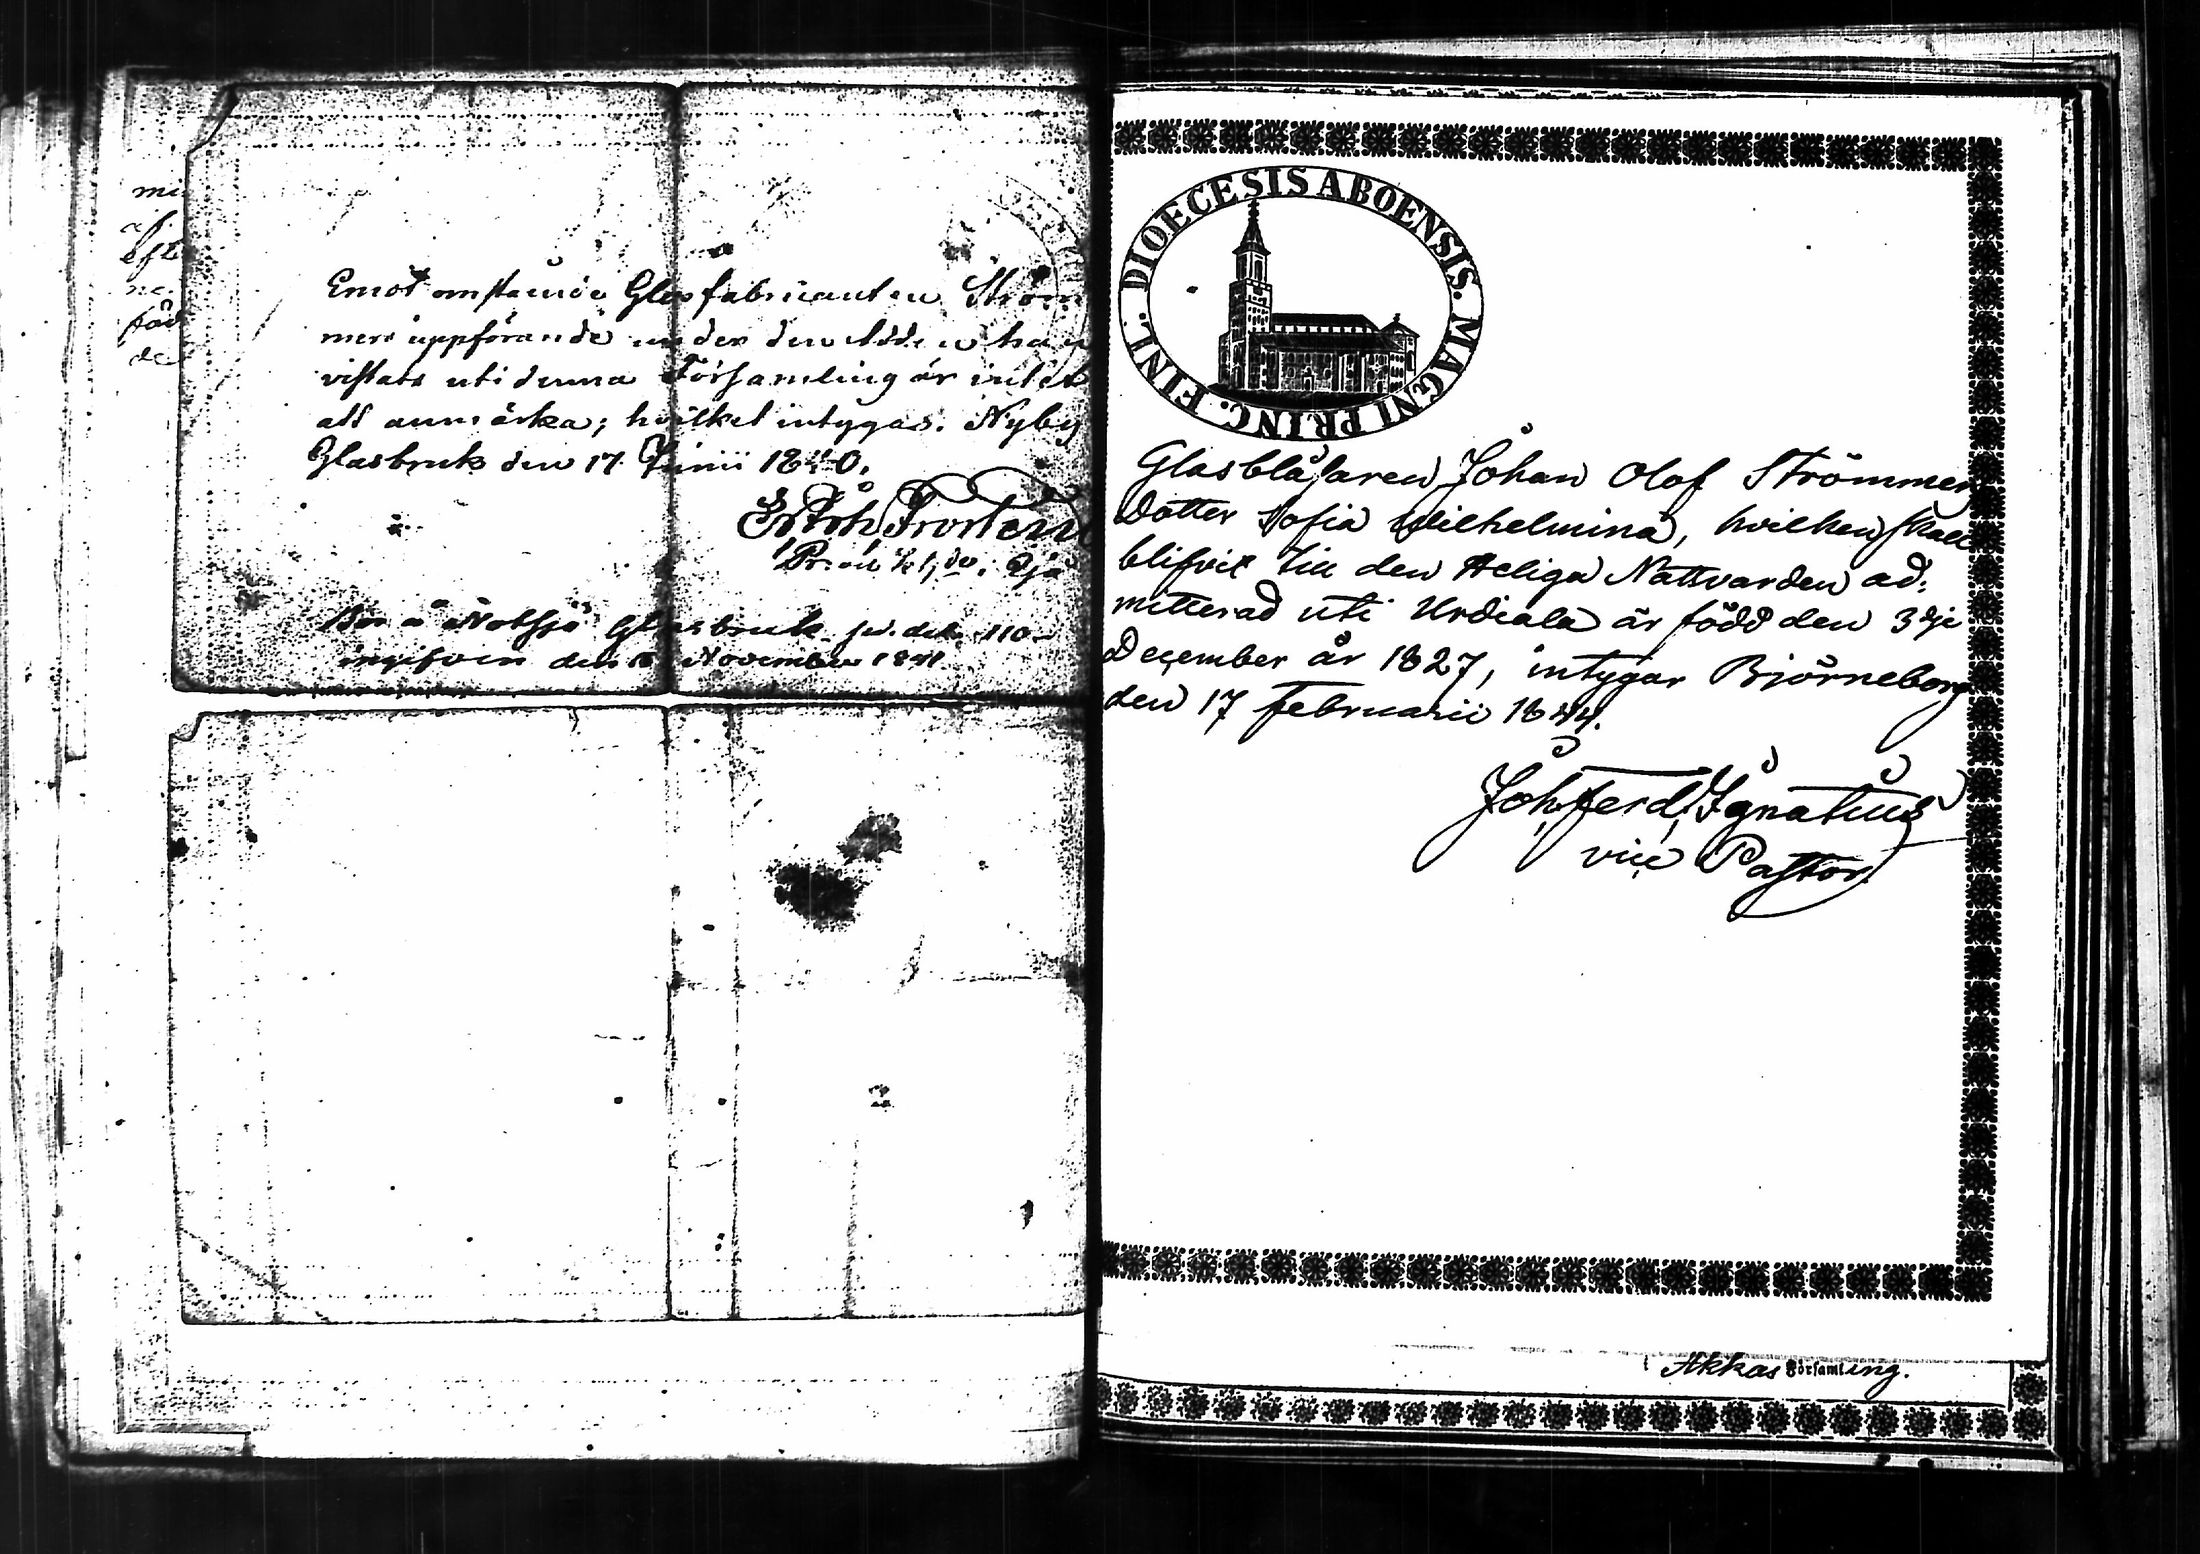 mi
af
efte
ne
föd
de
Emot omstående Glasfabricanten Ström
mers uppförande under den tiden han
vistats uti denna Församling är intet
att anmärka; hvilket intygas. Nyby
Glasbruk den 17 Junii 1840.
Bor å Notsjö Glasbruk
ingifven den November 1841
DIOECESIS ABOENSIS. MAGNI PRINC. FINL.
Glasblåsaren Johan Olof Strömmers
Dotter Sofia Wilhelmina, hvilken skall
blifvit till den Heliga Nattvarden ad:
mitterad uti Urdiala är född den 3dje
December år 1827, intygar Björneborg
den 17 februarii 1844.
Joh, ferd, Ignatius
vice Pastor
Akkas Församling.